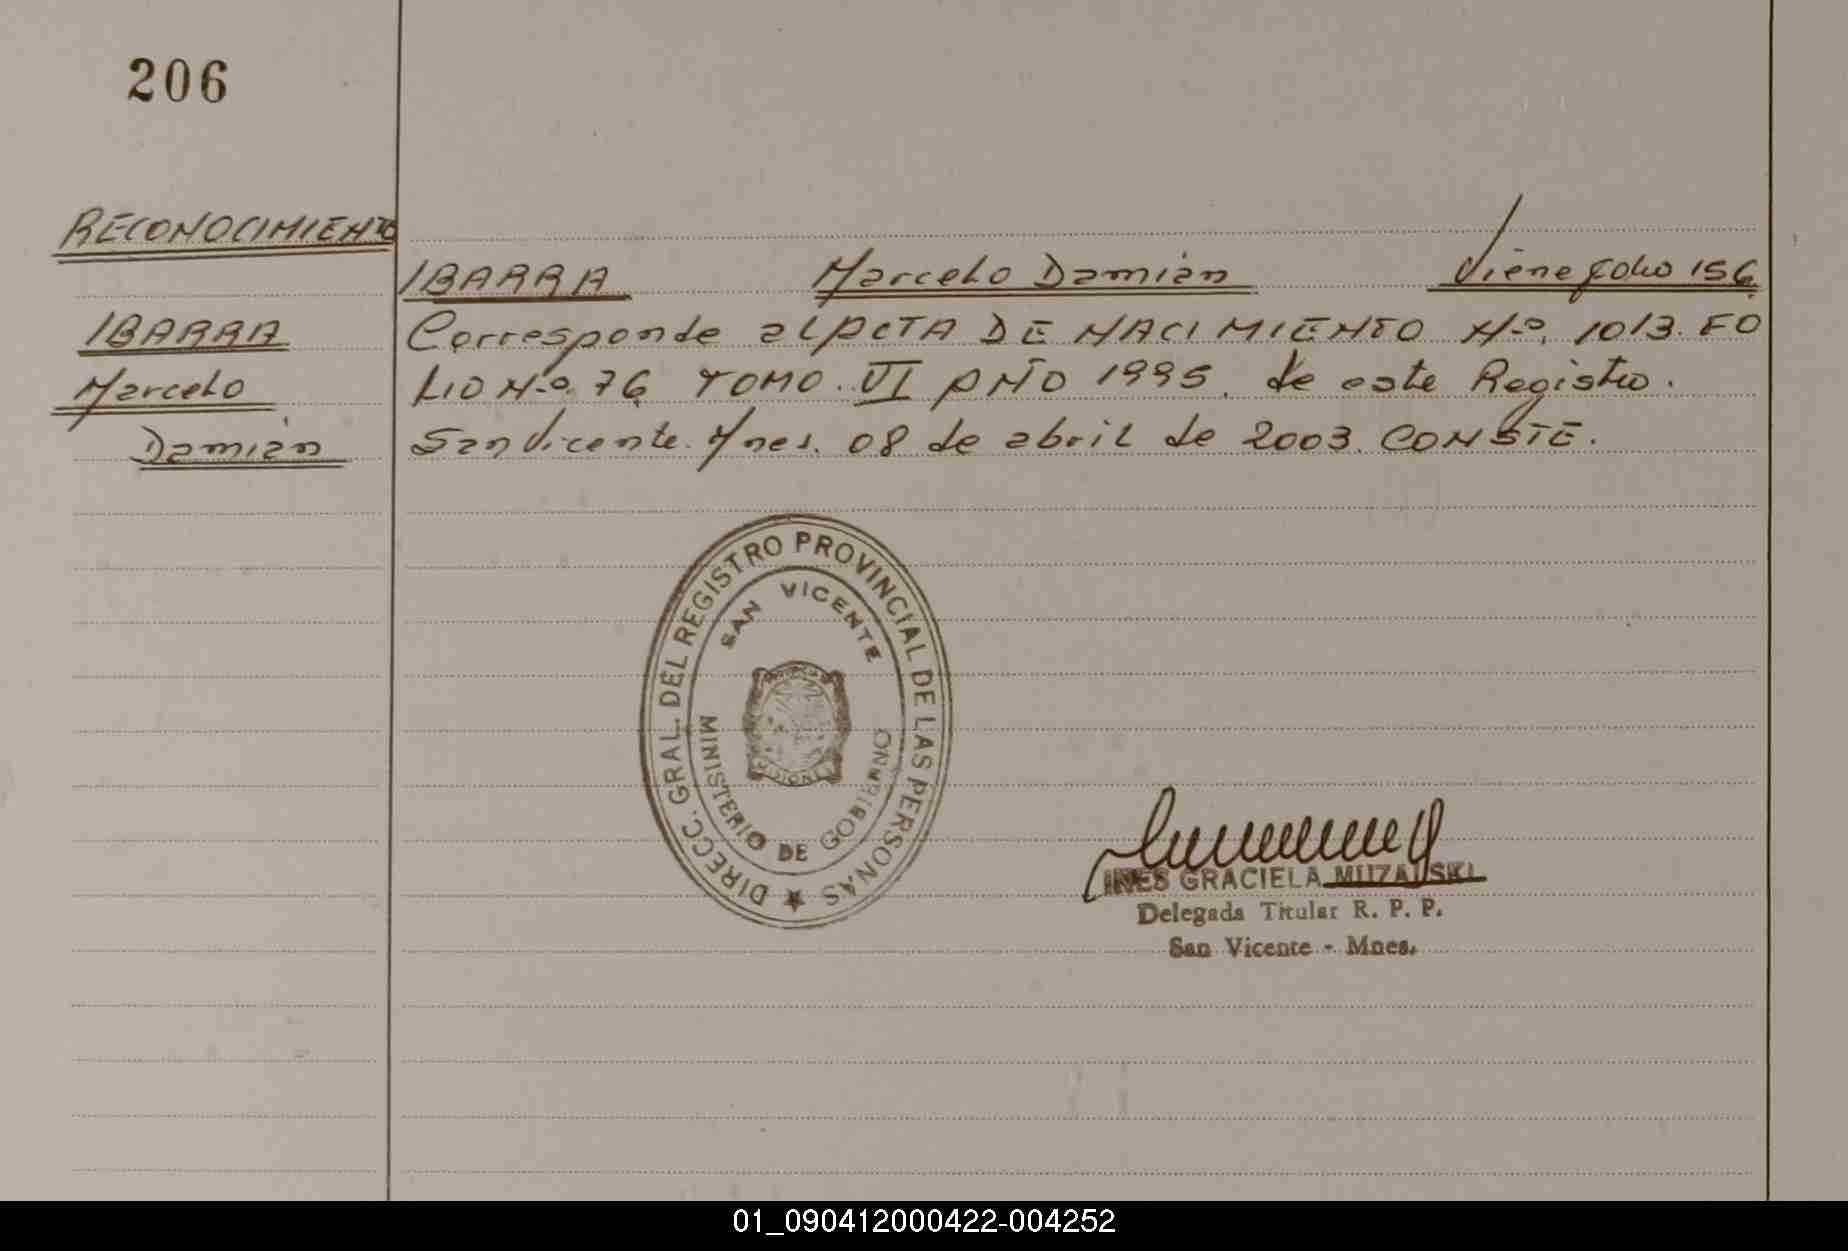 206
RECONOCIMIENTO
IBARRA
Marcelo
Damián
IBARRA Marcelo Damián Viene folio 156
Corresponde al ACTA DE NACIMIENTO Nº. 1013. FO
LIO Nº. 76 TOMO. VI AÑO 1995. de este Registro.
San Vicente. Mnes. 08 de abril de 2003. CONSTE.
DIRECC. GRAL. DEL REGISTRO PROVINCIAL DE LAS PERSONAS
SAN VICENTE
MISIONES
MINISTERIO DE GOBIERNO
INES GRACIELA
Delegada Titular R. P. P.
San Vicente - Mnes.
01_090412000422-004252